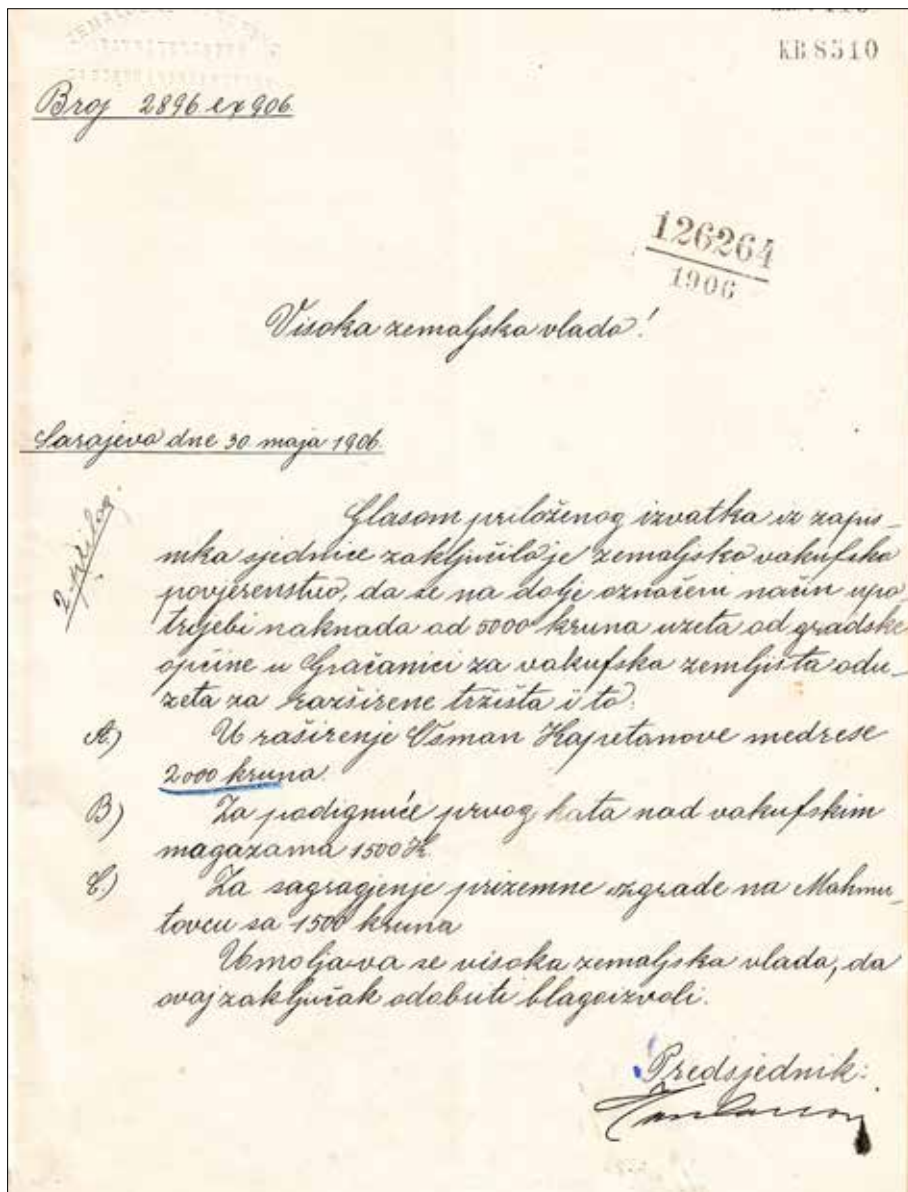 KB 8510
Broj 2896 ex 906
126264
1906
Visoka zemaljska vlado!
Sarajevo dne 30 maja 1906.
2. prilog.
Glasom priloženog izvatka iz zapis-
nika sjednice zaključilo je zemaljsko vakufsko
povjerenstvo, da se na dolje označeni način upo-
trijebi naknada od 5000 kruna uzeta od gradske
općine u Gračanici za vakufska zemljišta odu-
zeta za razširene tržišta i to:
A.) U raširenje Osman Kapetanove medrese
2000 kruna.
B) Za podignuće prvog kata nad vakufskim
magazama 1500 K.
C.) Za sagragjenje prizemne zgrade na Mahmu-
tovcu sa 1500 kruna
Umoljava se visoka zemaljska vlada, da
ovaj zaključak odobriti blagoizvoli.
Predsjednik: